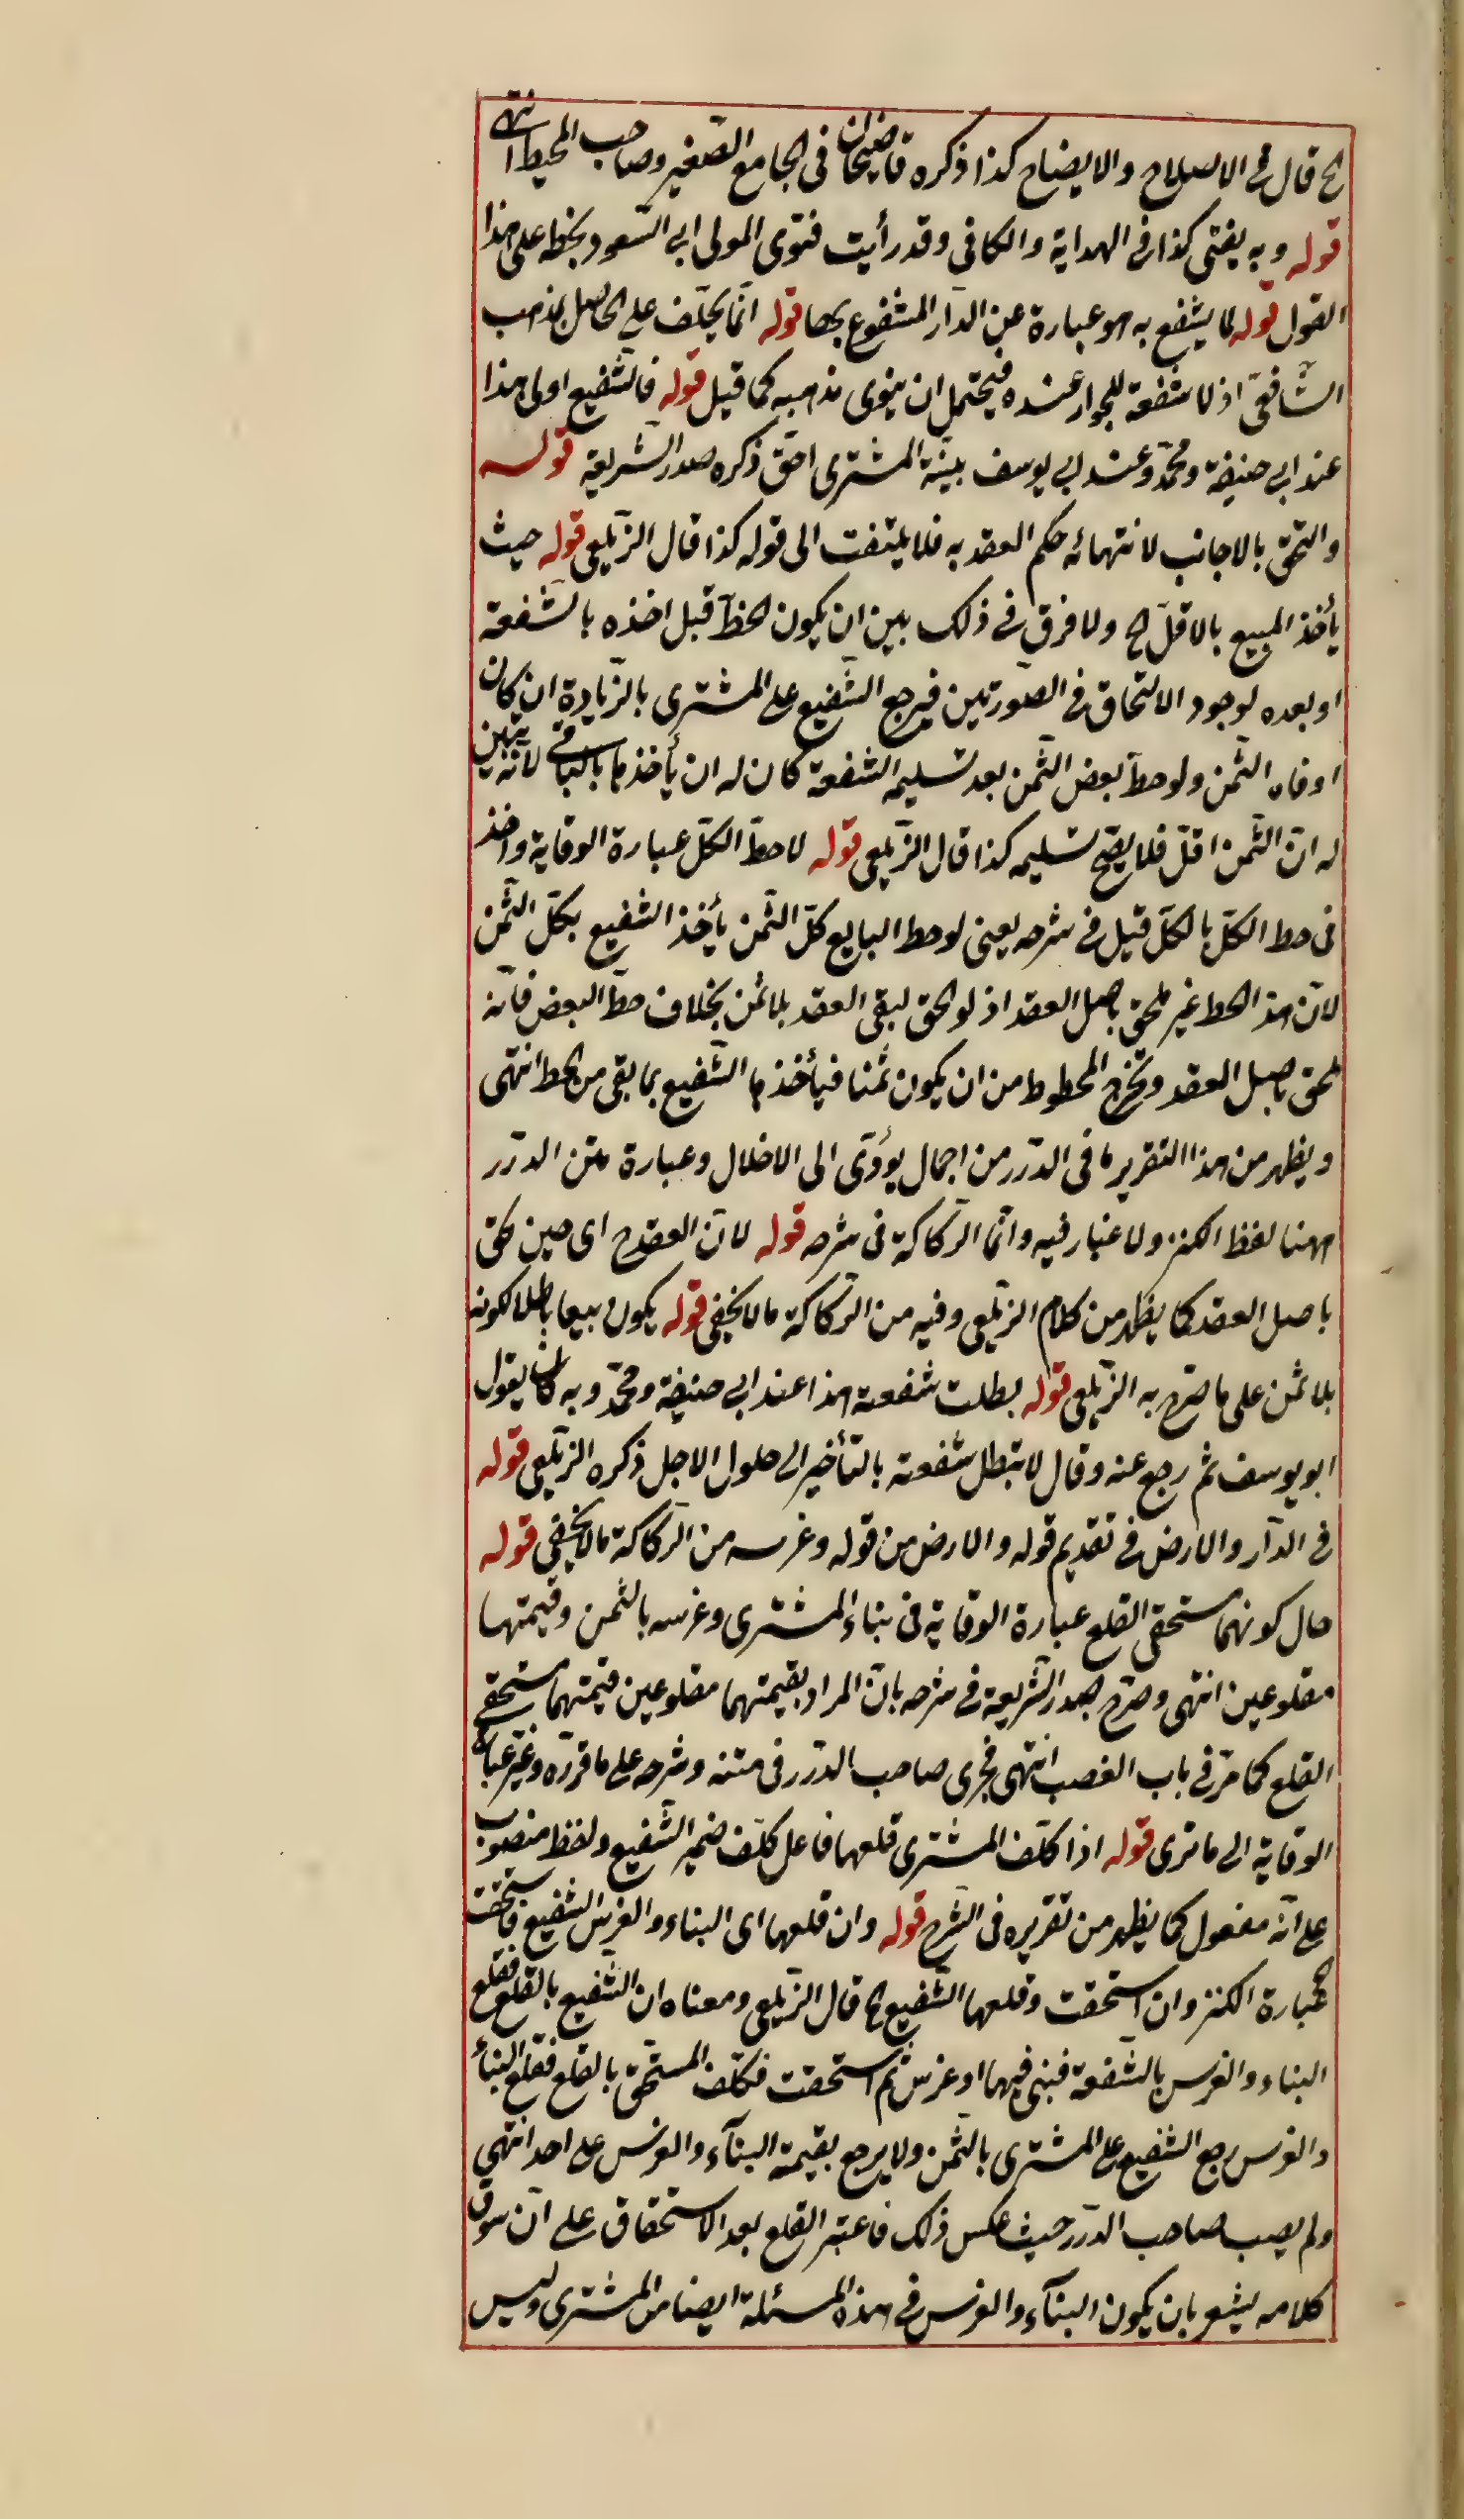 الخ قال في الاصلاح والايضاح كذا ذكره قاضيخان في الجامع الصّغير وصاحب المحيط انتهى
قوله وبه يفتى كذا في الهداية والكافي وقد رأيت فتوى المولى ابي السّعود بخطه على هذا
القول قوله لما يشفع به هو عبارة عن الدّار المشفوع بها قوله انّما يحلّف على الحاصل بمذهب
الشّافعيّ اذ لا شفعة للجوار عنده فيحتمل ان ينوى مذهبه كما قيل قوله فالشّفيع اولى هذا
عند ابي حنيفة ومحمّد وعند ابي يوسف بيّنة المشترى احقّ ذكره صدر الشّريعة قوله
والتحق بالاجانب لانتهائه حكم العقد به فلا يلتفت الى قوله كذا قال الزّيلعي قوله حيث
يأخذ المبيع بالاقلّ الخ ولا فرق في ذلك بين ان يكون الحطّ قبل اخذه بالشّفعة
او بعده لوجود الالتحاق في الصّورتين فيرجع الشّفيع على المشترى بالزّيادة ان كان
اوفاه الثّمن ولو حطّ بعض الثّمن بعد تسليمه الشفعة كان له ان يأخذها بالباقي لانّه تبيّن
له انّ الثّمن اقلّ فلا يصحّ تسليمه كذا قال الزّيلعي قوله لا حطّ الكلّ عبارة الوقاية واخذ
في حط الكلّ بالكلّ قيل في شرحه يعنى لو حط البايع كلّ الثّمن يأخذ الشفيع بكلّ الثّمن
لانّ هذا الحط غير ملحق باصل العقد اذ لو الحق لبقى العقد بلا ثمن بخلاف حطّ البعض فانّه
ملحق باصل العقد وتخرج المحطوط من ان يكون ثمنا فيأخذها الشّفيع بما بقى من الحط انتهى
ويظهر من هذا التقرير ما في الدّرر من اجمال يؤدّى الى الاخلال وعبارة متن الدّرر
ههنا لفظ الكنز ولا غبار فيه وانّما الرّكاكة في شرحه قوله لانّ العقد ح اى حين لحق
باصل العقد كما يظهر من كلام الزيلعي وفيه من الرّكاكة ما لا يخفى قوله يكون بيعا باطلا لكونه
بلا ثمن على ما صرّح به الزّيلعي قوله بطلت شفعته هذا عند ابي حنيفة ومحمّد وبه كان يقول
ابو يوسف ثم رجع عنه وقال لا تبطل شفعته بالتأخير الى حلول الاجل ذكره الزيلعي قوله
في الدّار والارض في تقديم قوله والارض من قوله وغرسه من الرّكاكة ما لا يخفى قوله
حال كونهما مستحقى القلع عبارة الوقاية في بناء المشترى وغرسه بالثمن وقيمتهما
مقلوعين انتهى وصرّح صدر الشّريعة في شرحه بانّ المراد بقيمتهما مقلوعين قيمتهما مستحقى
القلع كما مرّ في باب الغصب انتهى فجرى صاحب الدّرر في متنه وشرحه على ما قرّره وغيّر عبارة
الوقاية الى ما ترى قوله اذا كلّف المشترى قلعها فاعل كلّف ضمير الشّفيع ولفظ منصوب
على انّه مفعول كما يظهر من تقريره في الشّرح قوله وان قلعهما اى البناء والغرس الشفيع فاستحقت
عبارة الكنز وان استحقت وقلعها الشّفيع الخ قال الزّيلعي ومعناه ان الشّفيع بالقلع فقلع
البناء والغرس بالشّفعة فبنى فيها او غرس ثم استحقت فكلّف المستحق بالقلع فقلع البناء
والغرس رجع الشفيع على المشترى بالثّمن ولا يرجع بقيمة البناء والغرس على احد انتهى
ولم يصب صاحب الدّرر حيث عكس ذلك فاعتبر القلع بعد الاستحقاق على انّ سوق
كلامه يشعر بان يكون البناء والغرس في هذه المسئلة ايضا من المشترى وليس